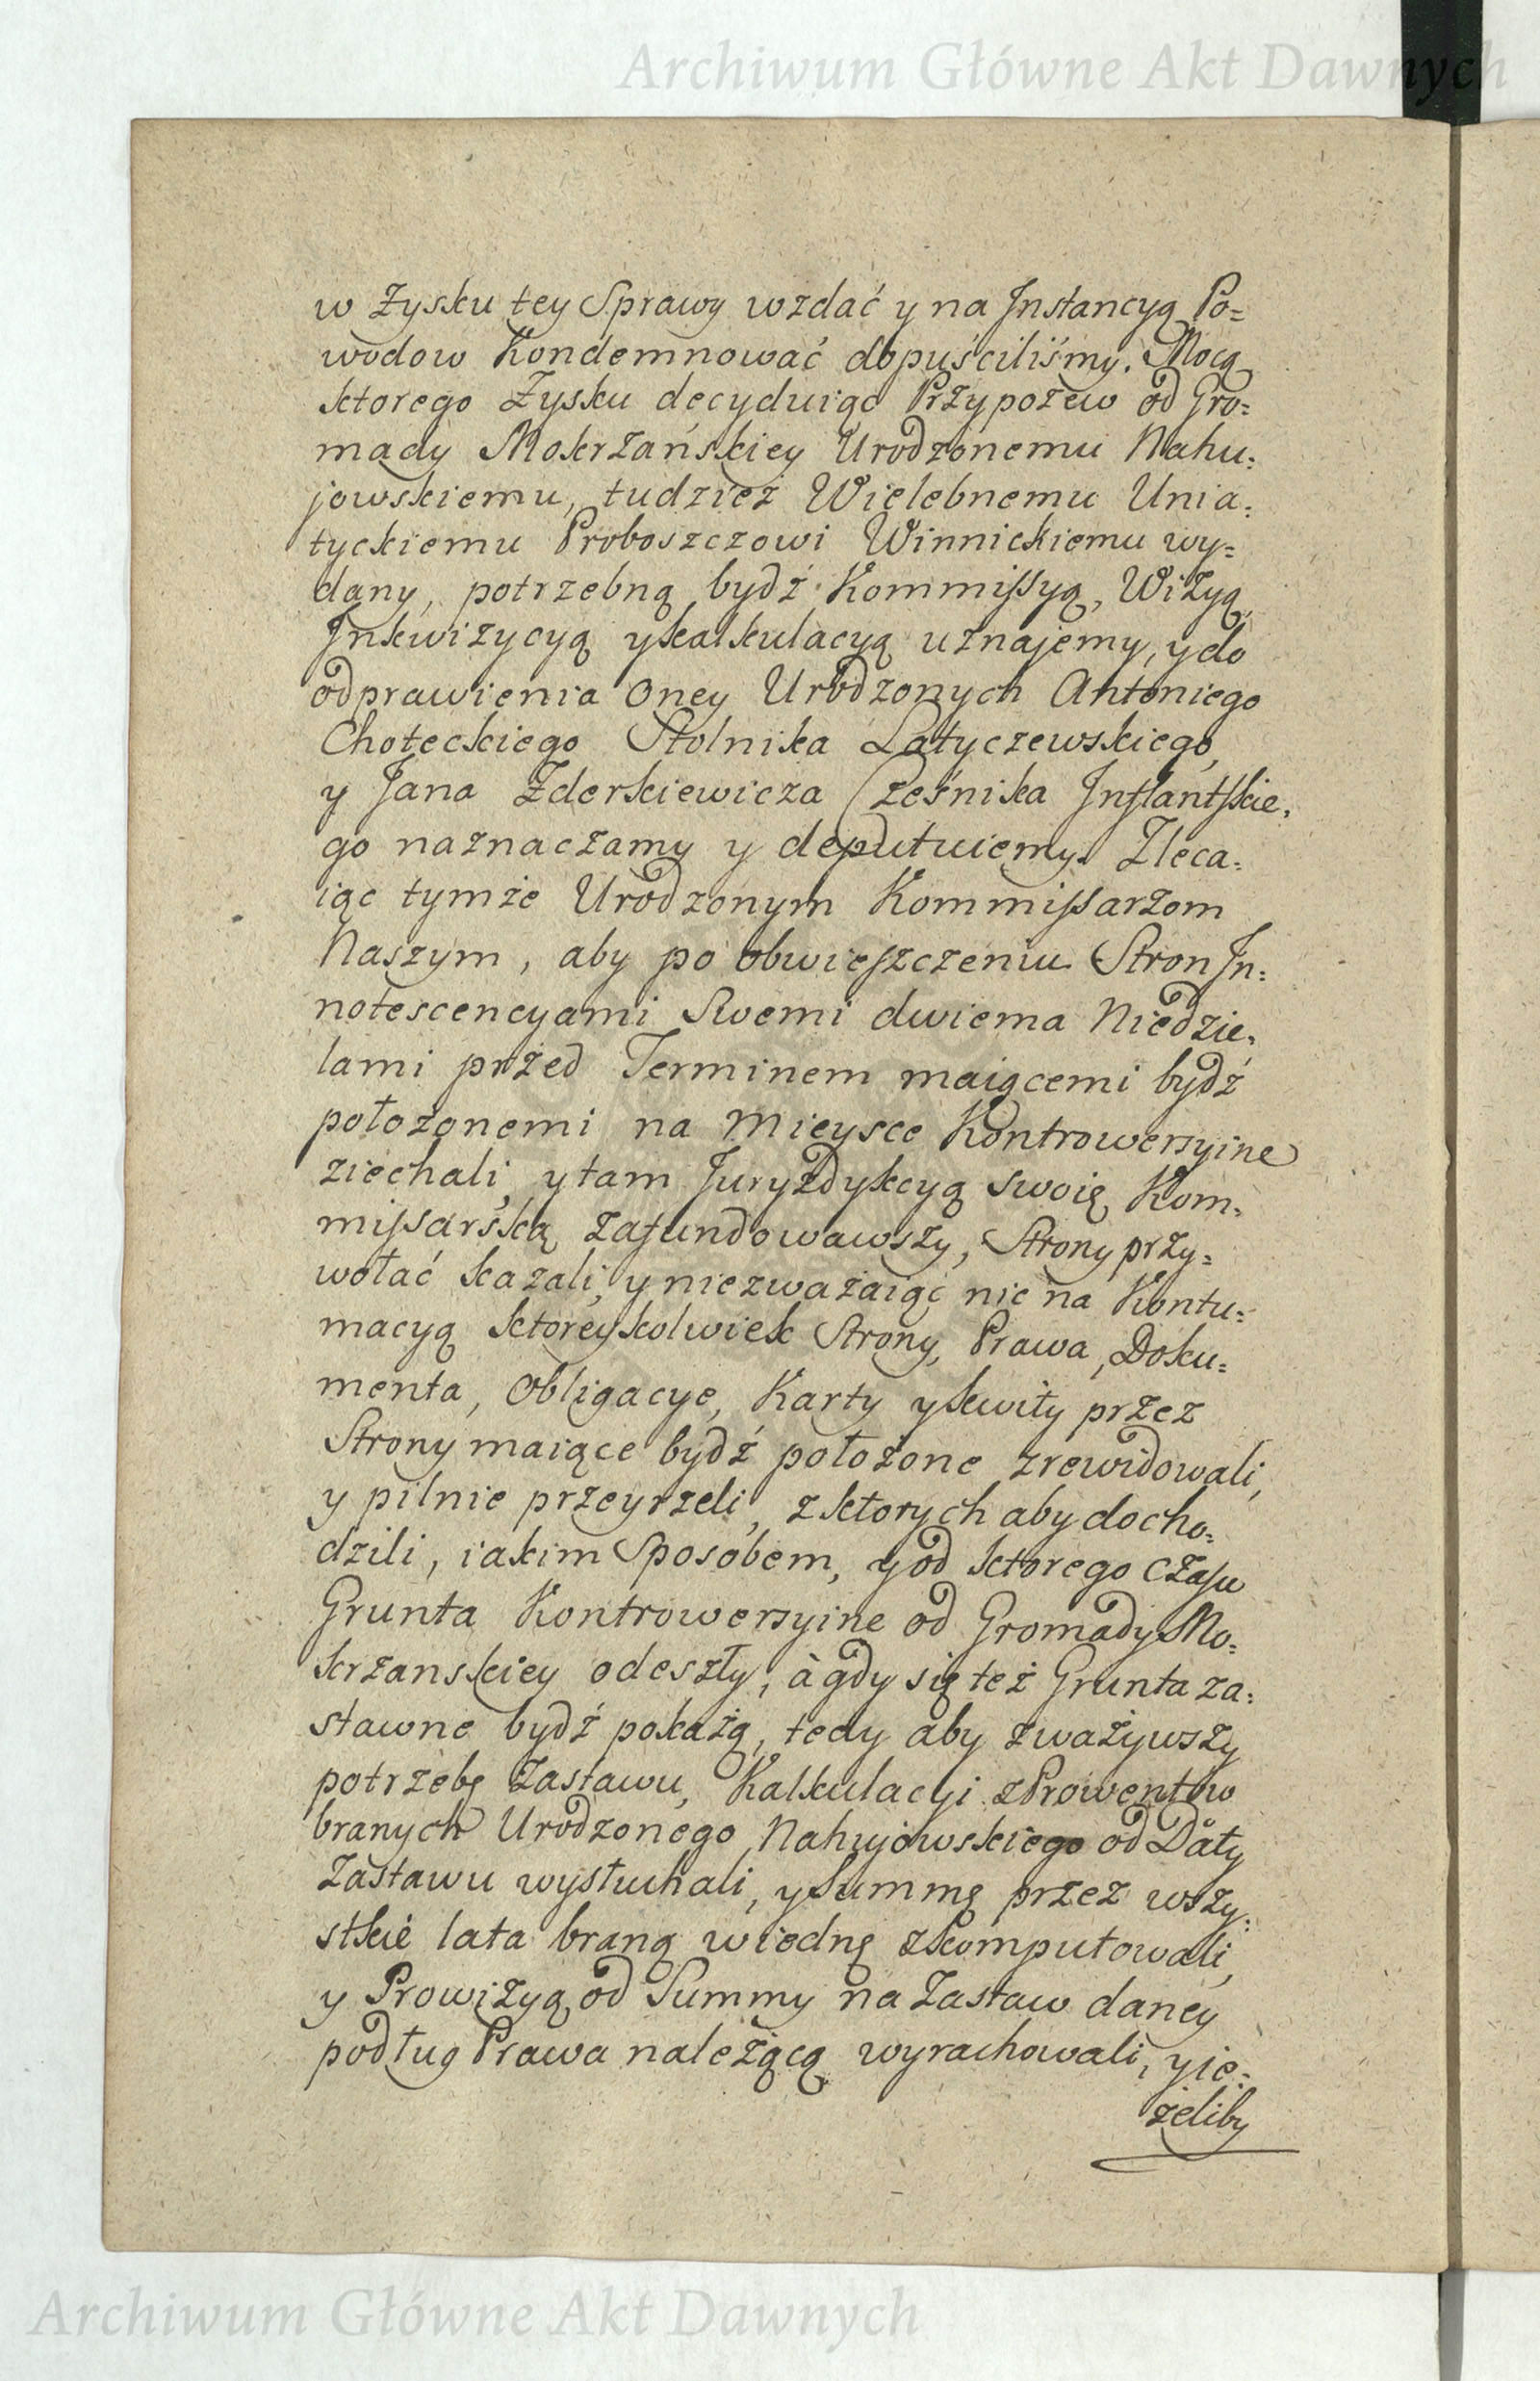 Archiwum Główne Akt Dawnych
w Zysku tey Sprawy wzdać y na Jnstancyą Po=
wodow Kondemnować dopuściliśmy. Mocą
ktorego Zysku decyduiąc Przypozew od Gro=
mady Mokrzańskiey Urodzonemu Nahu=
jowskiemu, tudzież Wielebnemu Unia=
tyckiemu Proboszczowi Winnickiemu wy=
dany, potrzebną bydź Kommissyą, Wizyą,
Jnkwizycyą y kalkulacyą uznajemy, y do
odprawienia Oney Urodzonych Antoniego
Chołeckiego Stolnika Latyczewskiego,
y Jana Zderkiewicza Cześnika Jnflantskie=
go naznaczamy y deputuiemy. Zleca=
iąc tymże Urodzonym Kommissarzom
Naszym, aby po obwieszczeniu Stron Jn=
notescencyami Swemi dwiema Niedzie=
lami przed Terminem maiącemi bydź
położonemi na Mieysce Kontrowersyine
ziechali, y tam Juryzdykcyą swoię Kom=
missarską zafundowawszy, Strony przy=
wołać kazali, y niezważaiąc nic na Kontu=
macyą ktoreykolwiek Strony, Prawa, Doku=
menta, Obligacye, Karty y kwity przez
Strony maiące bydź położone zrewidowali,
y pilnie przeyrzeli, z ktorych aby docho=
dzili, iakim Sposobem, y od ktorego czasu
Grunta Kontrowersyine od Gromady Mo=
krzanskiey odeszły, à gdy się też Grunta za=
stawne bydź pokażą, tedy aby zważywszy
potrzebę Zastawu, Kalkulacyi z Prowentow
branych Urodzonego Nahujowskiego od Daty
Zastawu wysłuchali, y Summę przez wszy=
stkie lata braną w iednę zkomputowali,
y Prowizyą od Summy na Zastaw daney
podług Prawa należącą wyrachowali, y ie=
żeliby
Archiwum Główne Akt Dawnych